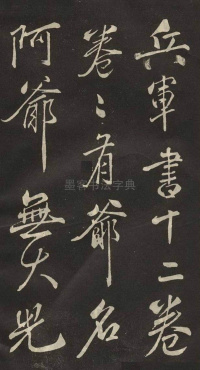 兵軍書十二卷
卷〻有爺名
阿爺無大兒
墨客书法字典